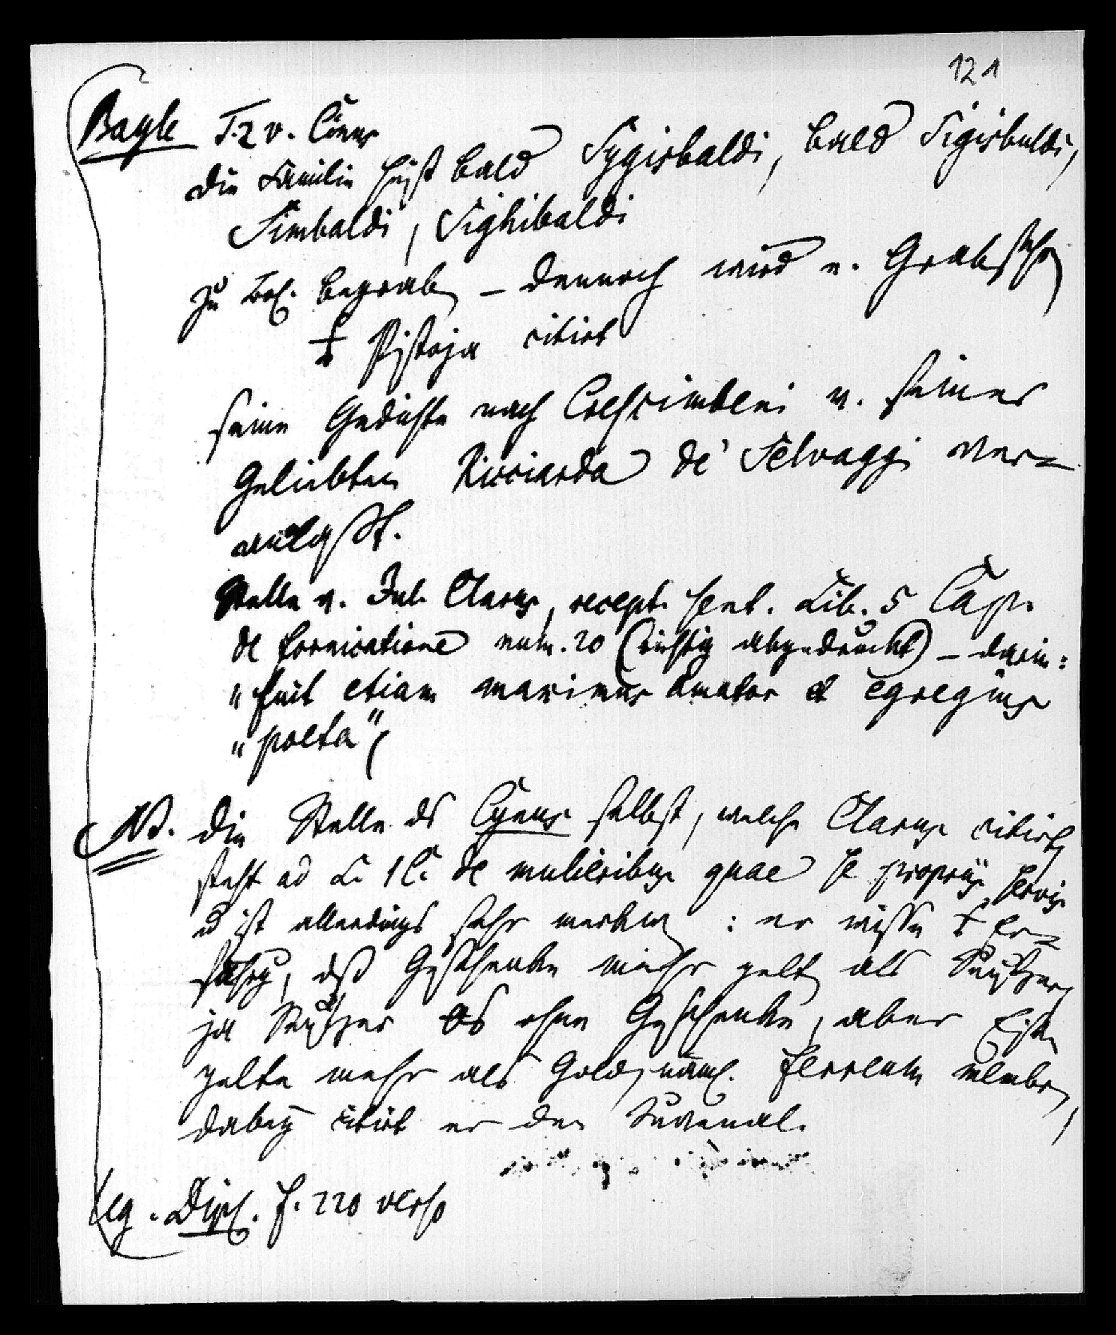 121
Bayle T. 2 v. Cinus
die Familie heißt bald Sygisbaldi, bald Sigisbuldi,
Simbaldi, Sighibaldi
zu Bol. begraben – dennoch wird e. Grabschr
Pistoja citirt
seine Gedichte nach Crescimbeni v. seiner
Geliebten Ricciarda de' Selvaggi ver=
anlaßt.
Stelle v. Jul. Clarus, recept. sent. Lib. 5 Cap.
de fornicatione num. 20 (richtig abgedruckt) – darin:
"fuit etiam maximus Amator et egregius
"poeta"
NB. die Stelle ds Cynus selbst, welche Clarus citirt,
steht ad L. 1 C. de mulieribus quae se propriis servis
ist allerdings sehr merkw : er wisse Er=
fahrg, daß Geschenke mehr gelten als Seufzer,
ja Seufzer ohne Geschenke, aber Eisen
gelte mehr als Gold, näml. ferreum membr,
dabey citirt er den Juvenal.
leg. Dipl. f. 220 verso